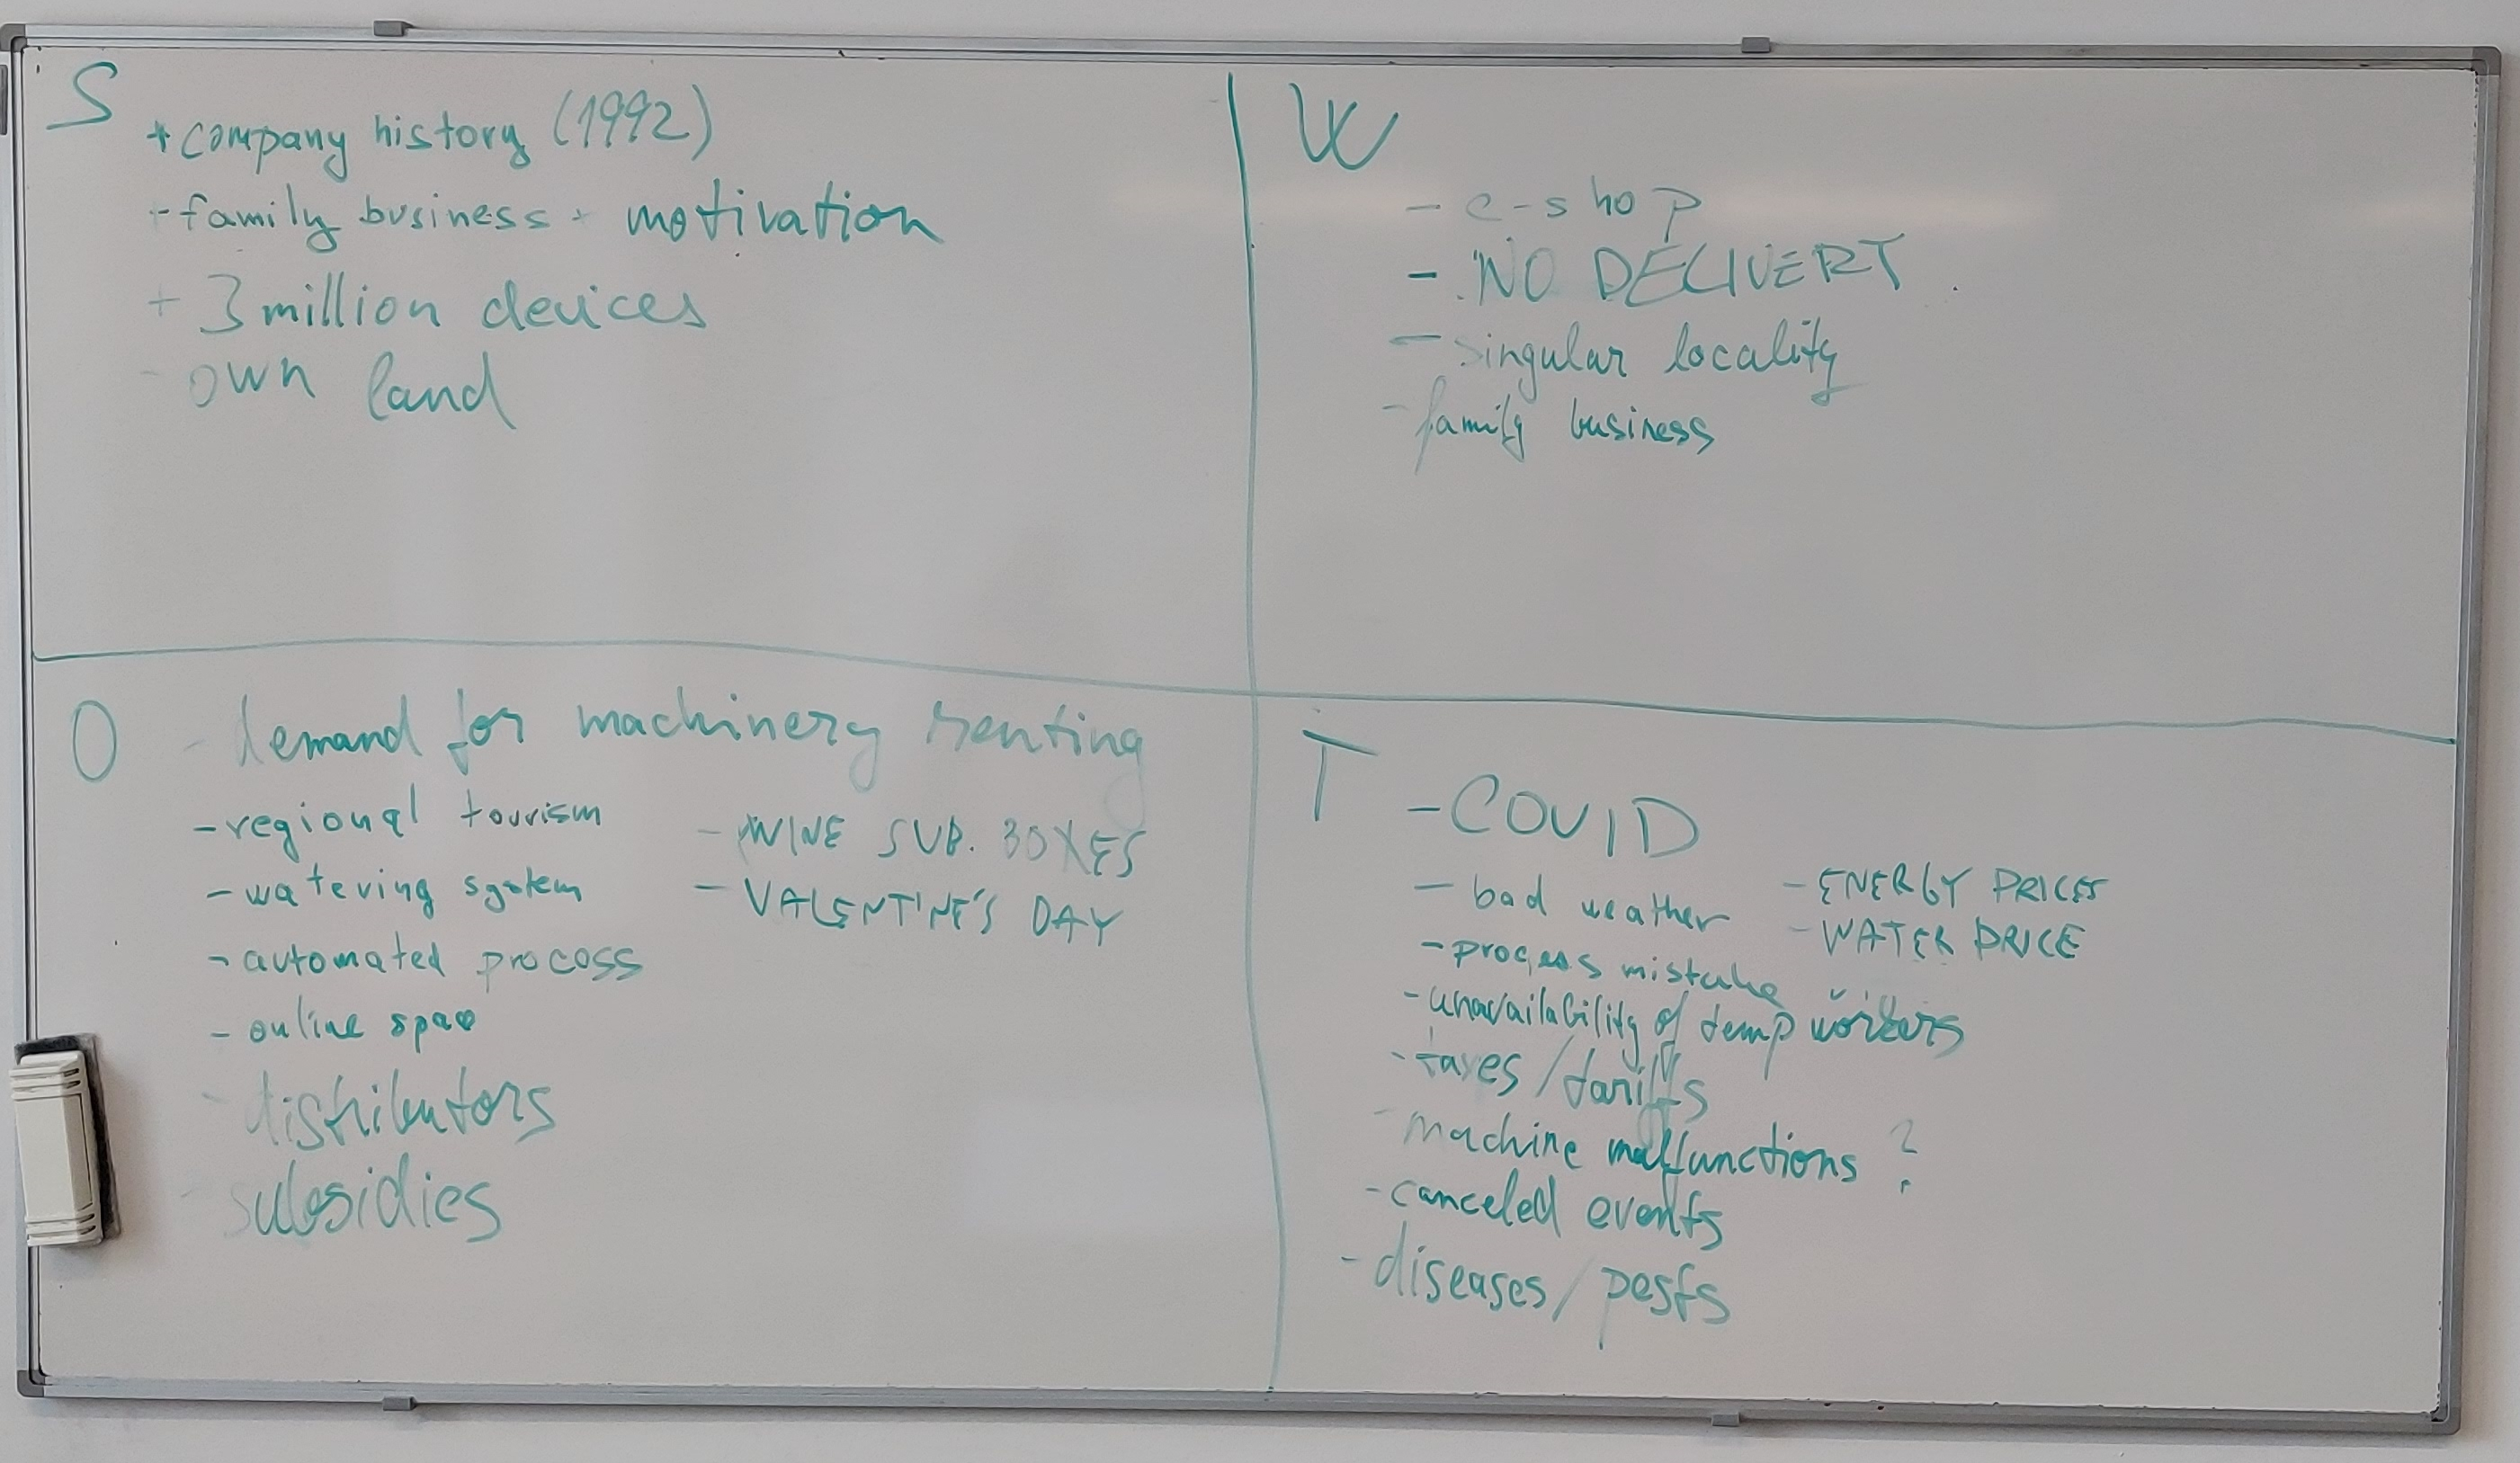 S
+ company history (1992)
- family business - motivation
+ 3 million devices
- own land
W
- e-shop
- NO DELIVERY
- singular locality
- family business
O
- demand for machinery renting
- regional tourism
- watering system
- automated process
- online space
- distributors
- subsidies
- WINE SUB. BOXES
- VALENTINE'S DAY
T
- COVID
- bad weather
- process mistake
- unavailability of temp workers
- taxes/tariffs
- machine malfunctions ?
- canceled events
- diseases/pests
- ENERGY PRICES
- WATER PRICE